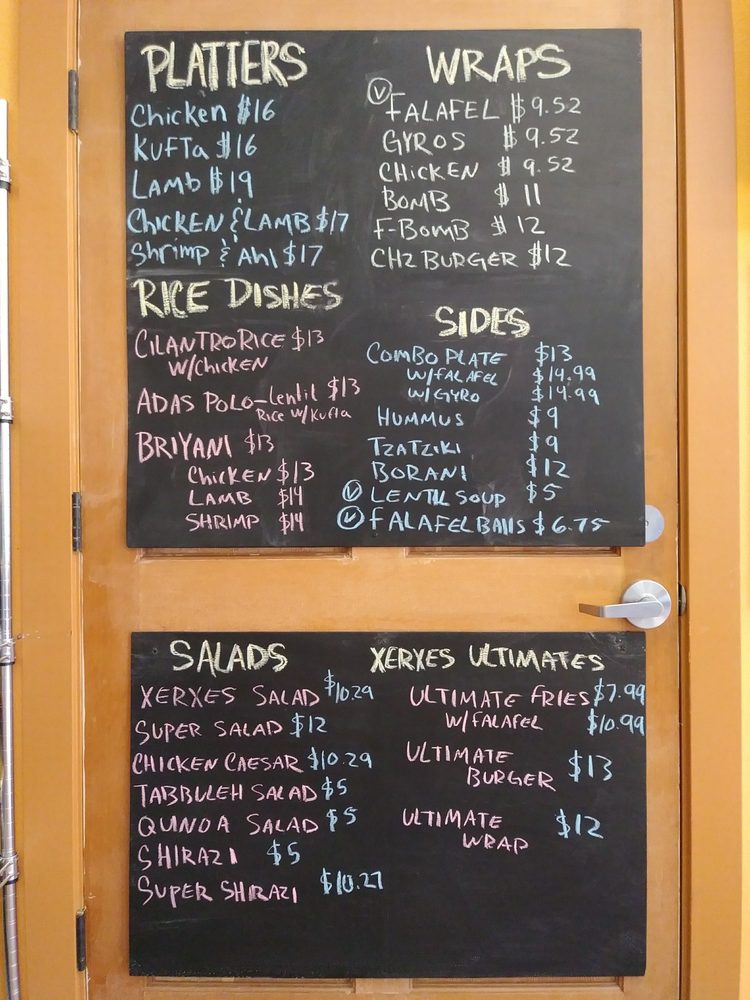 PLATTERS
Chicken $16
KUFTa $16
LAmb $19
CHICKEN & LAMB $17
Shrimp & AhI $17
RICE DISHES
CILANTRO RICE $13
W/CHICKEN
ADAS POLO-Lentil $13
RICE W/KUFTA
BRIYANI $13
CHICKEN $13
LAMB $14
SHRIMP $14
WRAPS
V FALAFEL $9.52
GYROS $9.52
CHICKEN $9.52
BOMB $11
F-BOMB $12
CHZ BURGER $12
SIDES
COMBO PLATE $13
W/FALAFEL $14.99
W/GYRO $14.99
HUMMUS $9
TZATZIKI $9
BORANI $12
V LENTIL SOUP $5
V FALAFEL BALLS $6.75
SALADS
XERXES SALAD $10.29
SUPER SALAD $12
CHICKEN CAESAR $10.29
TABBULEH SALAD $5
QUNOA SALAD $5
SHIRAZI $5
SUPER SHIRAZI $10.27
XERXES ULTIMATES
ULTIMATE FRIES $7.99
W/FALAFEL $10.99
ULTIMATE
BURGER $13
ULTIMATE
WRAP $12